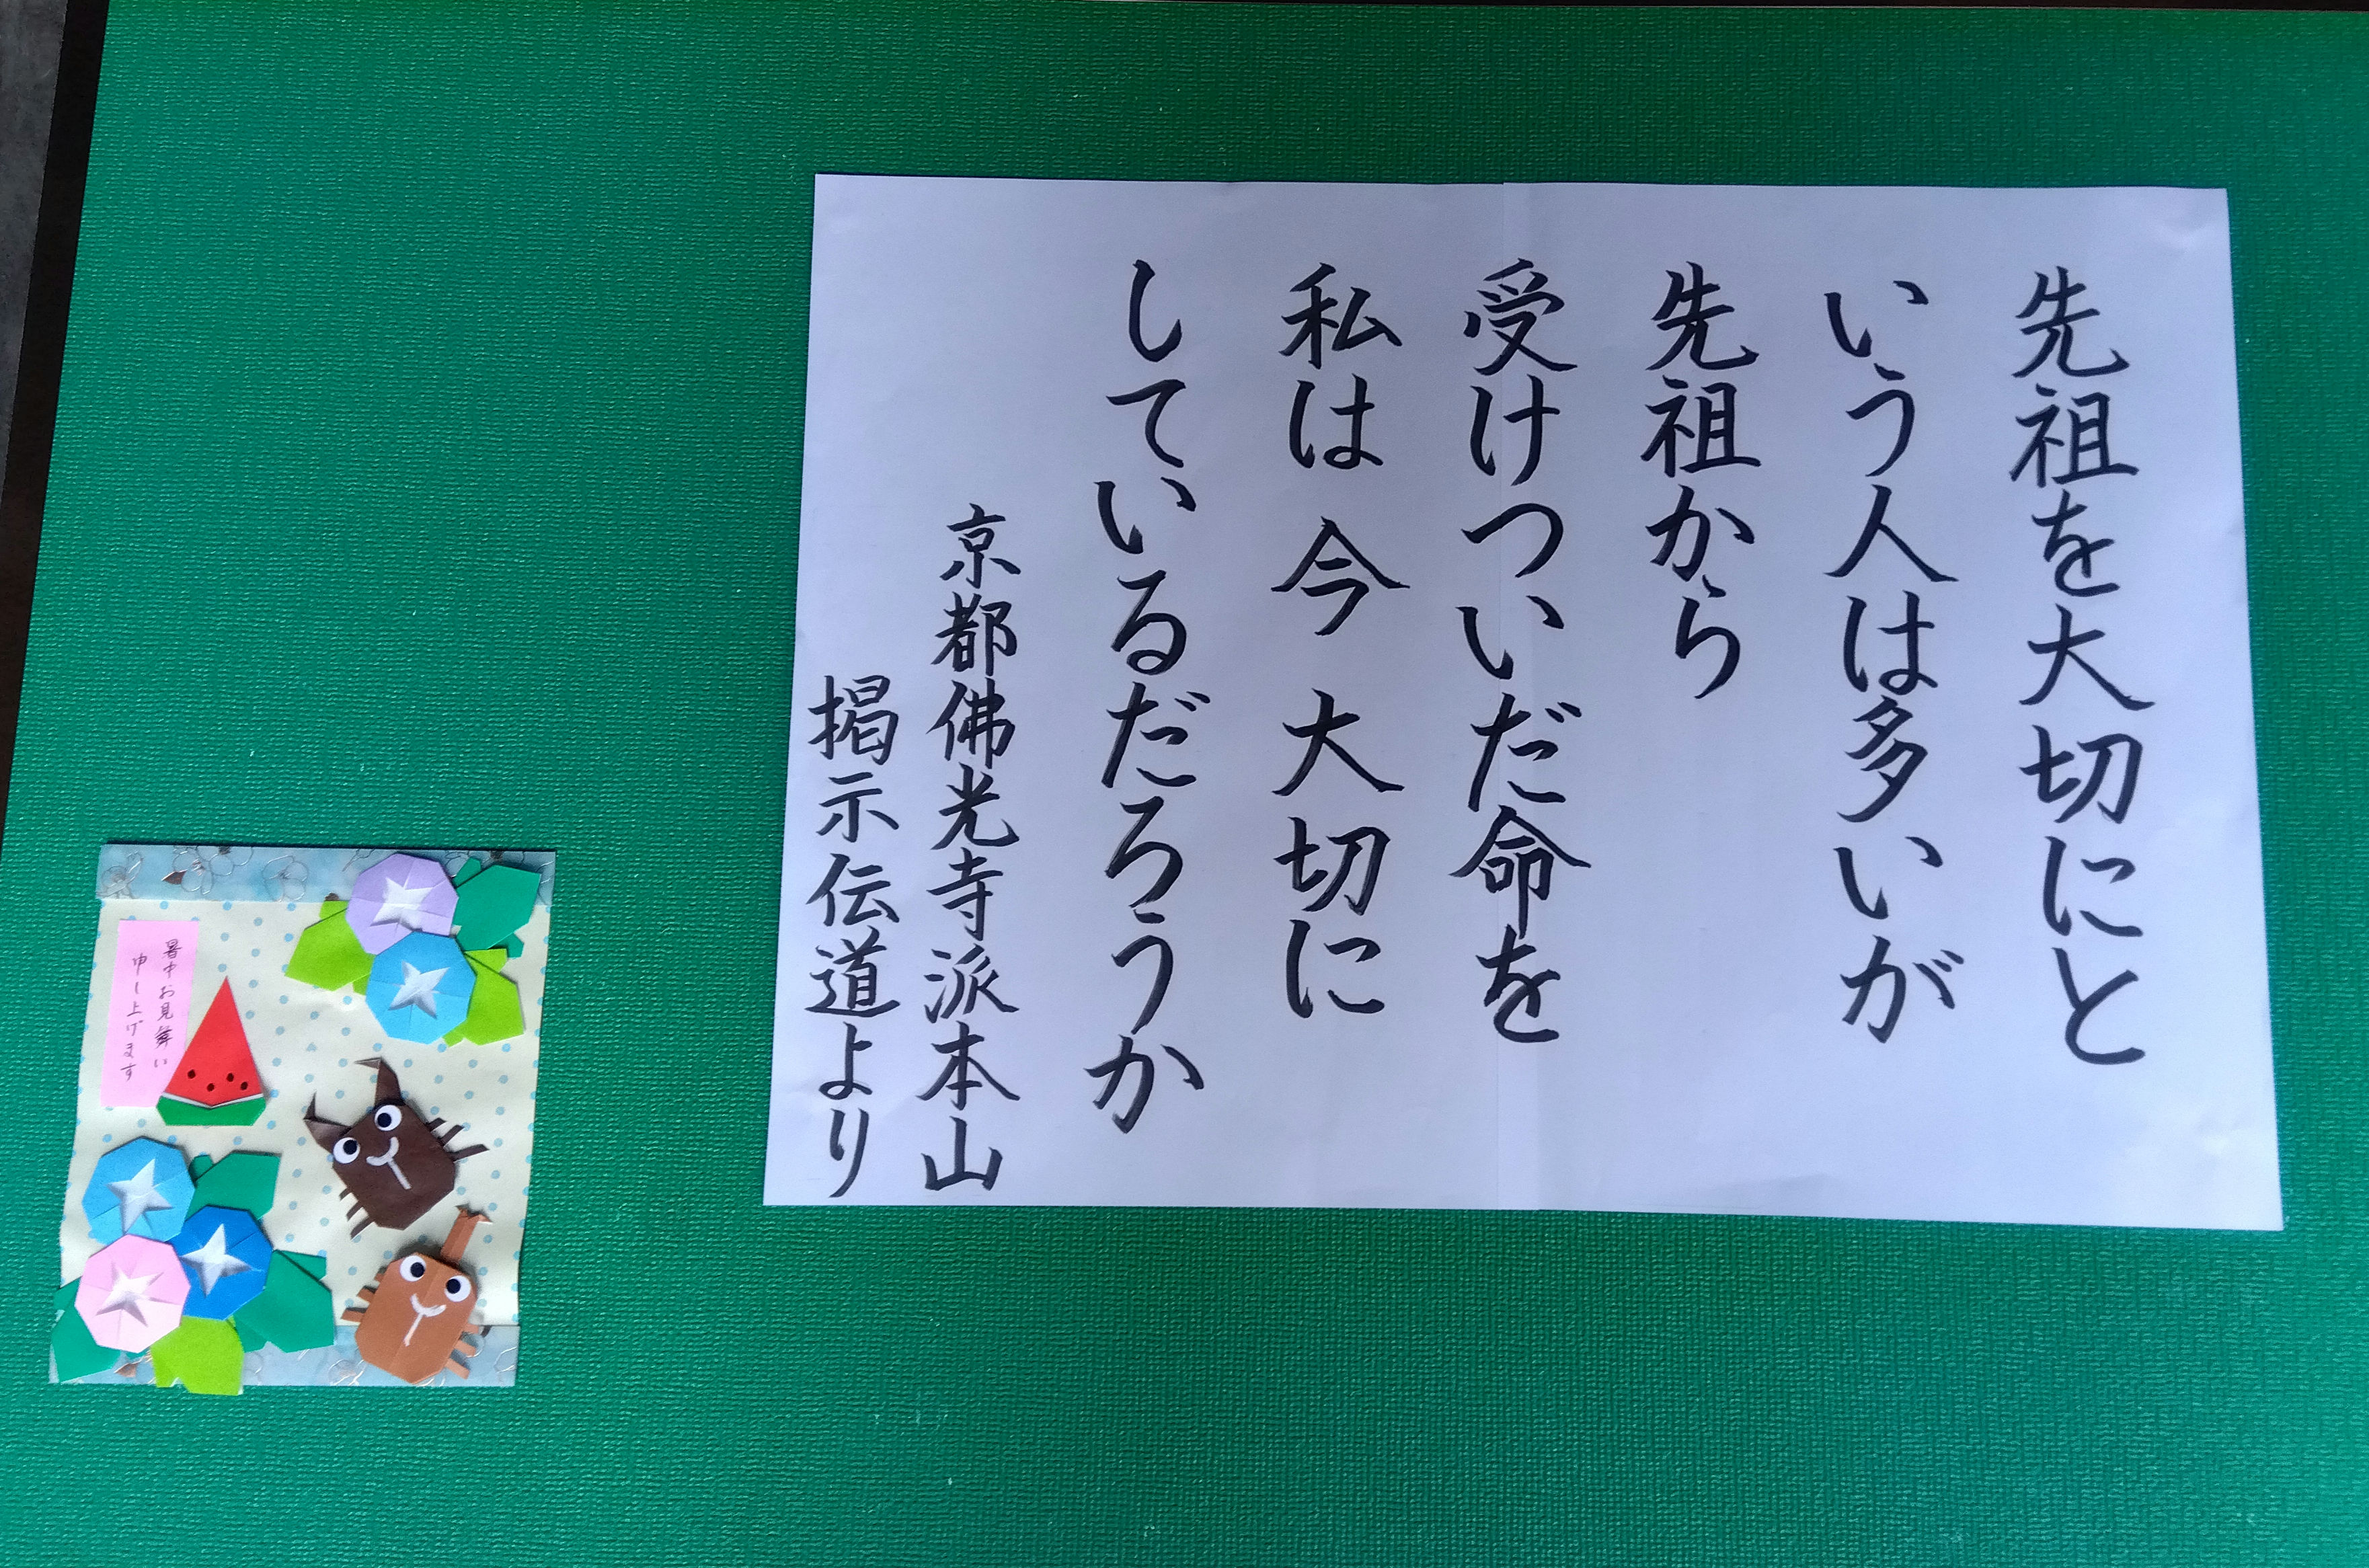 先祖を大切にと
いう人は多いが
先祖から
受けついだ命を
私は今大切に
しているだろうか
京都佛光寺派本山
掲示伝道より
暑中お見舞い
申し上げます